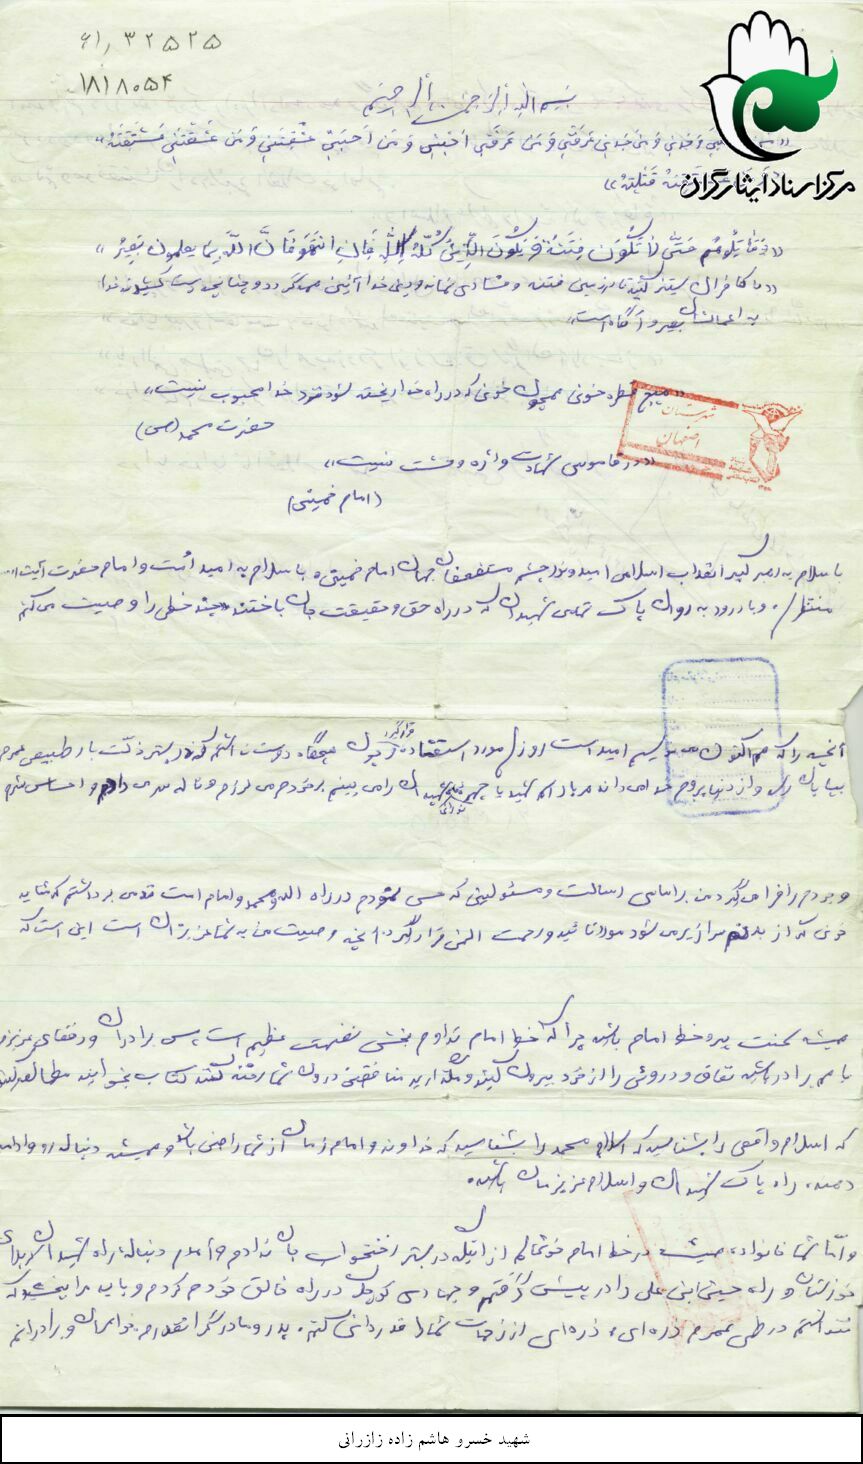 ۶۱٫۳۲۵۲۵
۱۸۱۸۰۵۴
بسم الله الرحمن الرحیم
مرکز اسناد ایثارگران
وجدنی و من وجدنی عرفنی و من عرفنی احبنی و من احبنی عشقنی و من عشقنی عشقته»
قتلته»
«و قاتلوهم حتی لا تکون فتنة و یکون الدین کله لله فان انتهوا فان الله بما یعملون بصیر»
«با کافران ستیز کنید تا در زمین فتنه و فسادی نماند و همه دین خدا
به اعمالشان بصیر و آگاه است»
«هیچ قطره خونی همچون خونی که در راه خدا ریخته شود نزد خدا محبوب نیست»
حضرت محمد (ص)
شهرستان
اصفهان
«در قاموس شهادت واژه وحشت نیست»
(امام خمینی)
با سلام به رهبر کبیر انقلاب اسلامی امید و نور چشم مستضعفان جهان امام خمینی و با سلام به امید امت و امام حضرت آیت ا...
منتظری و با درود به روان پاک تمامی شهیدان که در راه حق و حقیقت جان باختند چند خطی را وصیت می کنم
آنچه را که هم اکنون می نویسم امید است روزی مورد استفاده قرار گیرد چون هیچگاه دوست نداشتم که در بستر ذلت بار طبیعی عمرم
بپایان رسد و از دنیا بروم خدا می داند هر بار که چهره شهیدان را می بینم بر خود می لرزم و ناله سر می دادم و احساس شرم
وجودم را فرا می گیرد من بر اساس رسالت و مسئولیتی که حس نمودم در راه الله و محمد و امام امت قدمی برداشتم که شاید
خونی که از بدنم سرازیر می شود مورد تائید و رحمت الهی قرار گیرد. آنچه وصیت من به شما عزیزان است این است که
همیشه پیرو خط امام باشید چرا که خط امام تداوم بخش نهضت عظیم است، پس برادران و رفقای عزیزم
با هم برادر باشید نفاق و دروئی را از خود بیرون کنید و نگذارید منافقین درون شما رخنه کنند کتاب بخوانید مطالعه کنید
که اسلام واقعی را بشناسید که اسلام محمد را بشناسید که خداوند و امام زمان از شما راضی باشد و همیشه دنباله رو و ادامه
دهنده راه پاک شهیدان و اسلام عزیزمان باشید.
و امّا شما خانواده همیشه در خط امام خوشحالم از اینکه در بستر رختخواب جان ندادم و آمدم دنباله راه شهیدان کربلای
خوزستان و راه حسین ابن علی را در پیش گرفتم و جهادی کوچک در راه خالق خودم کردم و باید مرا ببخشید که
نتوانستم در طی عمرم ذره ای، ذره ای از زحمات شما قدردانی کنم. پدر و مادر گرانقدرم، خواهران و برادرانم
شهید خسرو هاشم زاده زازرانی